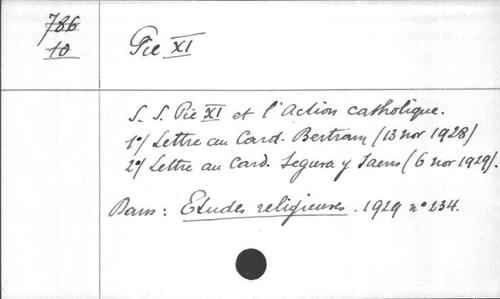 786
10
Pie XI
S. S. Pie XI et l'Action catholique.
1°/ Lettre au Card. Bertram (13 nov 1928)
2°/ Lettre au Card. Segura y Saens (6 nov 1929).
Dans : Etudes religieuses. 1929 n° 234.